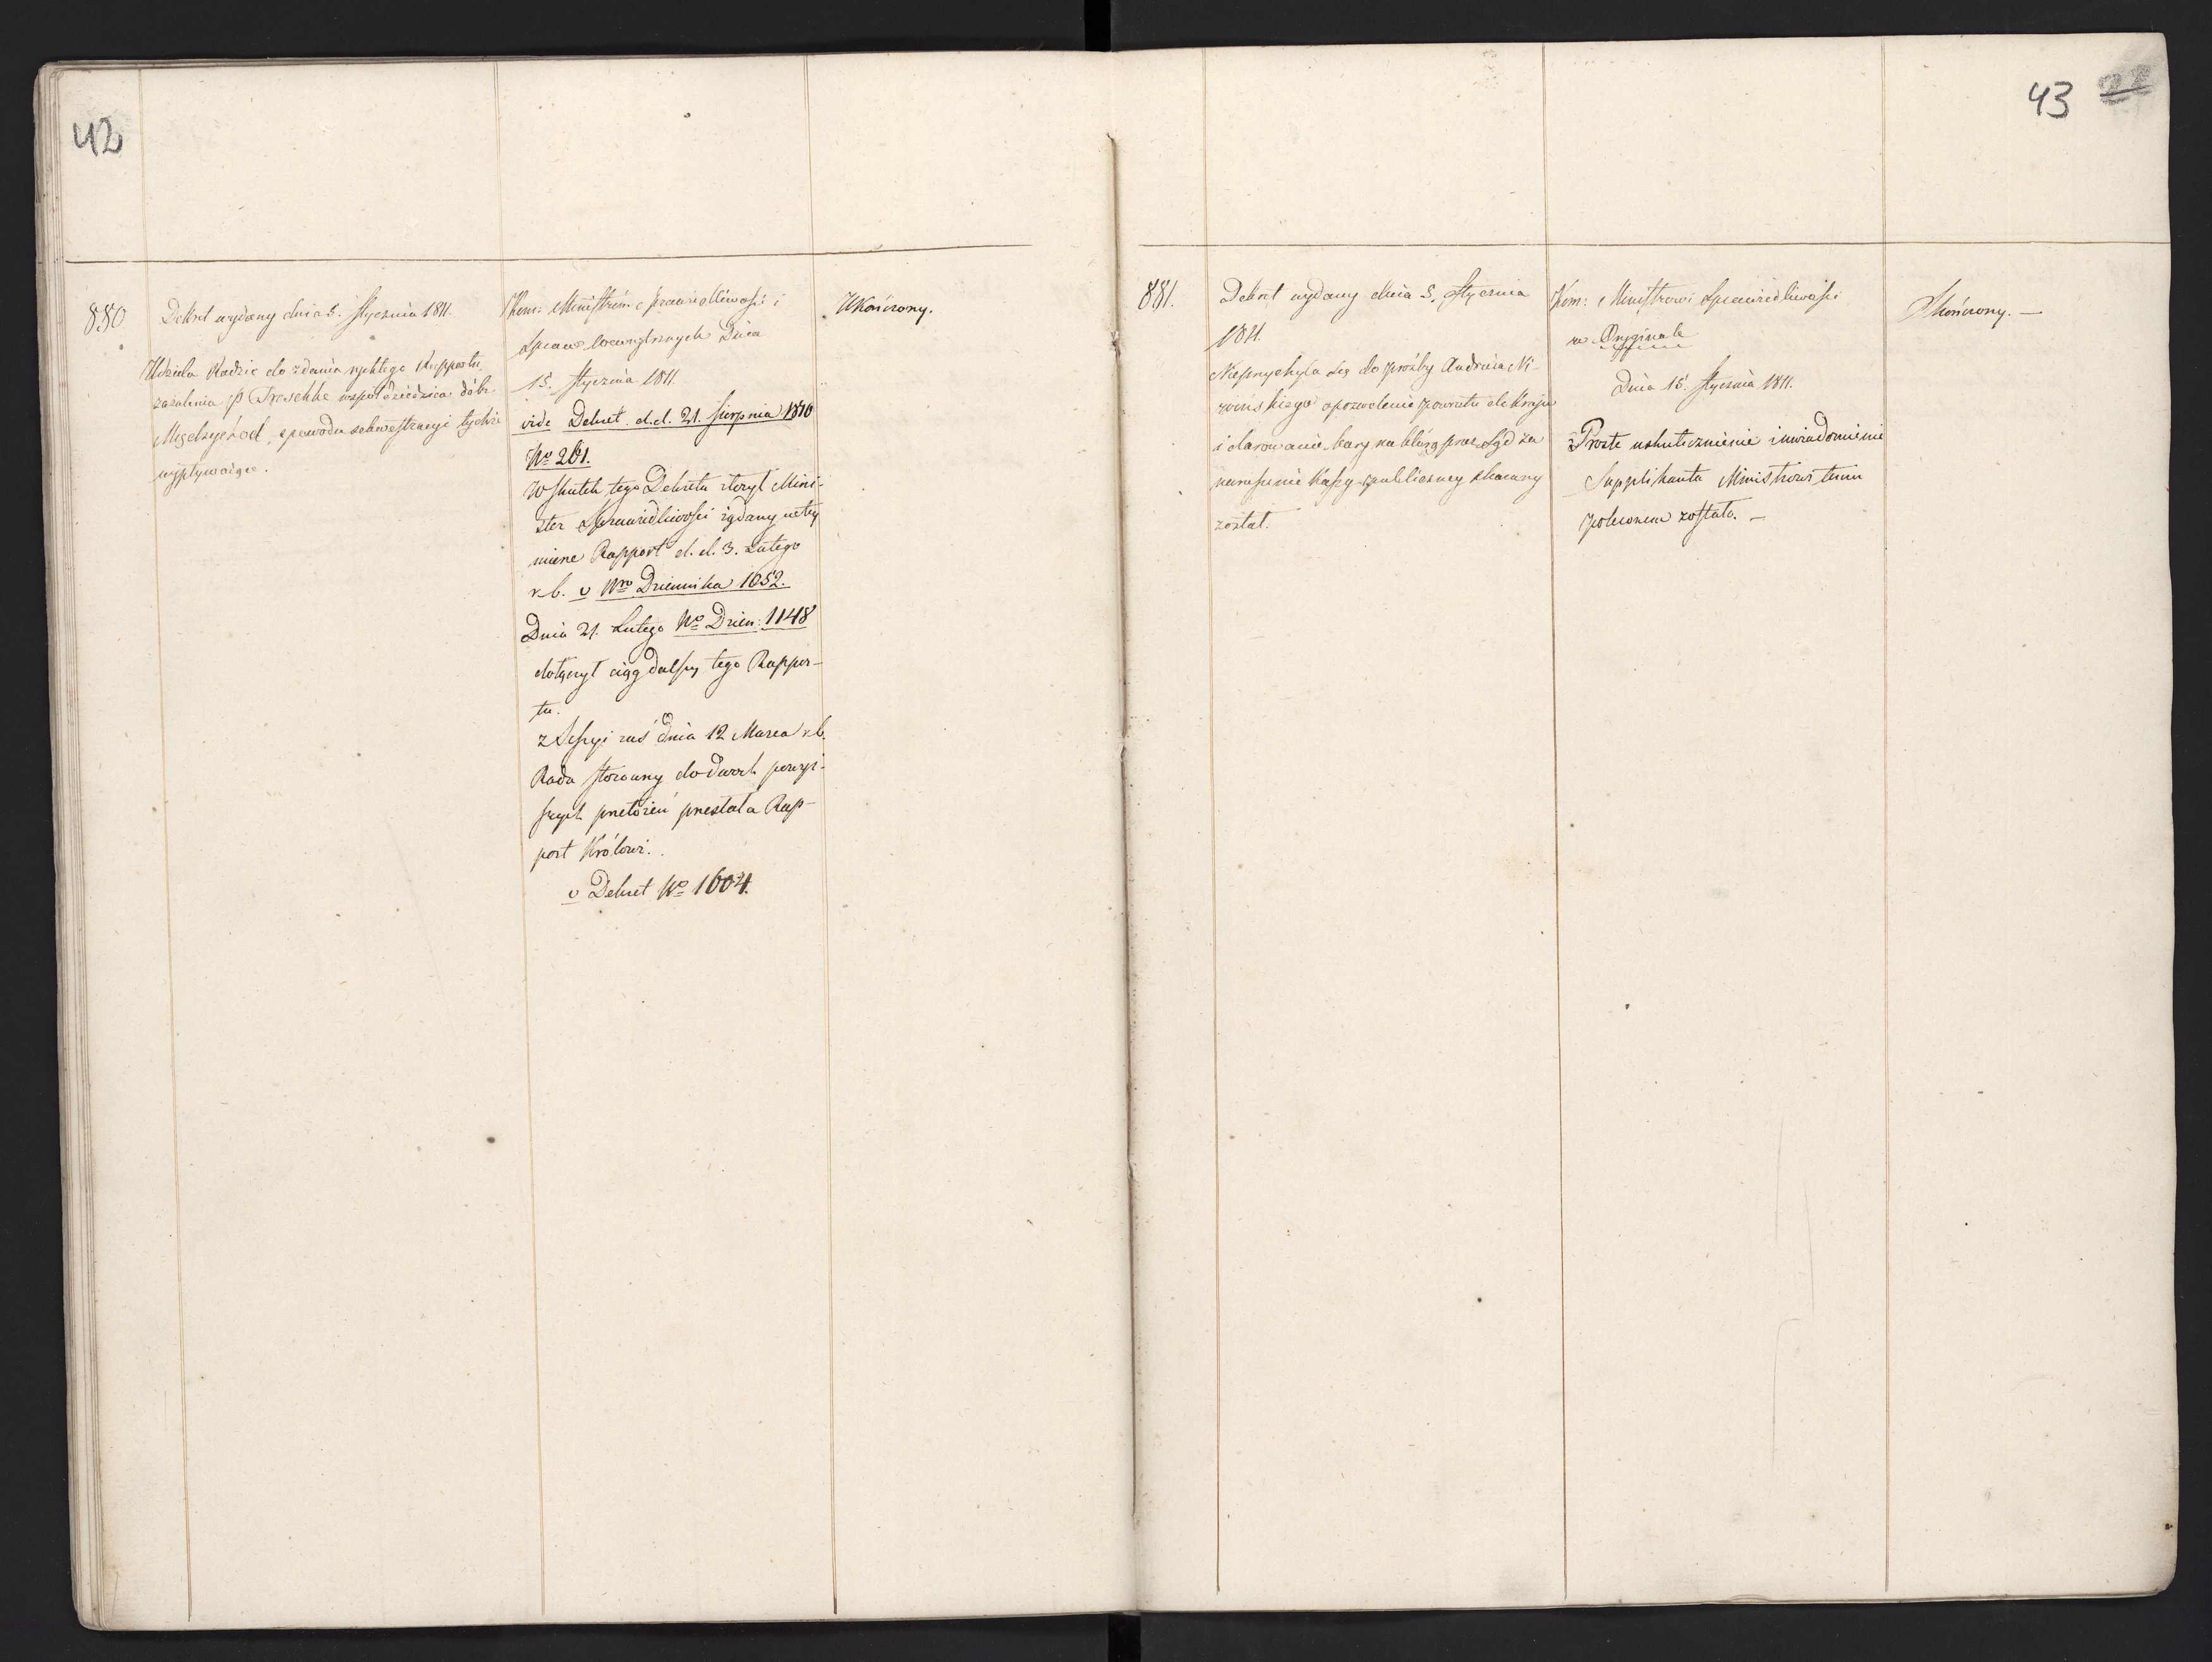 42
880
Dekret wydany dnia 5. Stycznia 1811.
Udziela Radzie do zdania rychłego Rapportu
zażalenia P Treschke współdziedzica dóbr
Międzychod, z powodu sekwestracyi tychże
wypływaiące.
Kom: Ministrom Sprawiedliwości i
Spraw Wewnętrznych Dnia
15. Stycznia 1811.
vide Dekret d. d. 21. Sierpnia 1810
No 261.
W skutek tego Dekretu złożył Mini-
ster Sprawiedliwości żądany
Rapport d. d. 3. Lutego
r. b. v Nro Dziennika 1052.
Dnia 21. Lutego No Dzien: 1148
dołączył ciąg dalszy tego Rappor-
tu.
z Sessyi zaś dnia 12 Marca r. b.
Rada stosowny do dwóch powyż-
szych przełożeń przesłała Rap-
port Królowi.
v Dekret No 1604.
Ukończony.
43 22
881.
Dekret wydany dnia 5. Stycznia
1811.
Nieprzychyla się do prośby Andrzeia Ni-
zwińskiego o pozwolenie powrotu do Kraju
i darowanie kary na którą przez Sąd za
naruszenie Kassy publiczney skazany
został.
Kom: Ministrowi Sprawiedliwości
w Oryginale
Dnia 15. Stycznia 1811.
Proste uskutecznienie i uwiadomienie
Supplikanta Ministrowi temu
poleconem zostało. —
Skończony. —